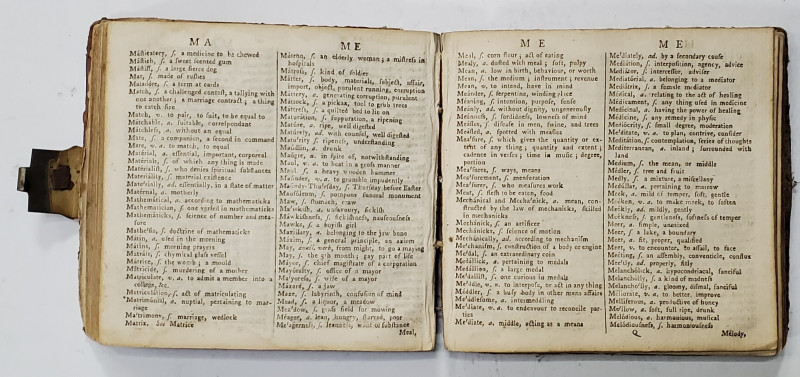 M A
Másticatory, ſ. a medicine to be chewed
Mástich, ſ. a sweet scented gum
Mástiff, ſ. a large fierce dog
Mat, ſ. made of rushes
Matadóre, ſ. a term at cards
Match, ſ. a challenged control, a tallying with
one another; a marriage contract; a thing
to catch fire
Match, v. to pair, to suit, to be equal to
Mátchable, a. suitable, correspondent
Mátchless, a. without an equal
Mate, ſ. a companion, a second in command
Mate, v. a. to match, to equal
Matérial, a. essential, important, corporeal
Matérials, ſ. of which any thing is made
Matérialist, ſ. who denies spiritual substances
Materiálity, ſ. material existence
Matérially, ad. essentially, in a state of matter
Matérnal, a. motherly
Mathemátical, a. according to mathematicks
Mathematícian, ſ. one versed in mathematicks
Mathemáticks, ſ. science of number and mea-
sure
Mathésis, ſ. doctrine of mathematicks
Mátin, a. used in the morning
Mátins, ſ. morning prayers
Mátrass, ſ. chymical glass vessel
Mátrice, ſ. the womb; a mould
Mátricide, ſ. murdering of a mother
Matrículate, v. a. to admit a member into a
college, &c.
Matriculátion, ſ. act of matriculating
Matrimónial, a. nuptial, pertaining to mar-
riage
Má'trimony, ſ. marriage, wedlock
Matrix. See Matrice
M E
Mátron, ſ. an elderly woman; a mistress in
hospitals
Matróss, ſ. kind of soldier
Mátter, ſ. body, materials, subject, affair,
import, object, purulent running, corruption
Máttery, a. generating corruption, purulent
Máttock, ſ. a pickax, tool to grub trees
Máttress, ſ. a quilted bed to lie on
Maturátion, ſ. suppuration, a ripening
Matúre, a. ripe, well digested
Matúrely, ad. with counsel, well digested
Matu'rity, ſ. ripeness, understanding
Máudlin, a. drunk
Máugre, ad. in spite of, notwithstanding
Maul, v. a. to beat in a gross manner
Maul, ſ. a heavy wooden hammer
Ma'under, v. a. to grumble impudently
Máundy-Thursday, ſ. Thursday before Easter
Mausoléum, ſ. pompous funeral monument
Maw, ſ. stomach, craw
Ma'wkish, a. unsavoury, sickish
Máwkishness, ſ. sickishness, nauseousness
Mawks, ſ. a boyish girl
Máxillary, a. belonging to the jaw bone
Máxim, ſ. a general principle, an axiom
May, auxil. verb, from might, to go a maying
May, ſ. the 5th month; gay part of life
Máyor, ſ. chief magistrate of a corporation
Máyoralty, ſ. office of a mayor
Ma'yoress, ſ. wife of a mayor
Mázard, ſ. a jaw
Maze, ſ. labyrinth, confusion of mind
Mead, ſ. a liquor, a meadow
Mea'dow, ſ. grass field for mowing
Méager, a. lean, hungry, starved, poor
Me'agerness, ſ. leanness, want of substance
Meal,
M E
Meal, ſ. corn flour; act of eating
Mealy, a. dusted with meal; soft, pulpy
Mean, a. low in birth, behaviour, or worth
Mean, ſ. the medium, instrument; revenue
Mean, v. to intend, have in mind
Meánder, ſ. serpentine, winding place
Méaning, ſ. intention, purpose, sense
Meánly, ad. without dignity, ungenerously
Méanness, ſ. sordidness, lowness of mind
Measles, ſ. disease in men, swine, and trees
Méasled, a. spotted with measles
Mea'sure, ſ. which gives the quantity or ex-
tent of any thing; quantity and extent;
cadence in verses; time in music; degree,
portion
Mea'sures, ſ. ways, means
Mea'surement, ſ. mensuration
Mea'surer, ſ. who measures work
Meat, ſ. flesh to be eaten, food
Mechánical and Mecha'nick, a. mean, con-
structed by the law of mechanicks, skilled
in mechanicks
Mechánick, ſ. an artificer
Mechánicks, ſ. science of motion
Mechánically, ad. according to mechanism
Méchanism, ſ. construction of a body or engine
Me'dal, ſ. an extraordinary coin
Medállick, a. pertaining to medals
Medállion, ſ. a large medal
Me'dallist, ſ. one curious in medals
Me'ddle, v. n. to interpose, to act in any thing
Méddler, ſ. a busy body in other mens affairs
Me'ddlesome, a. intermeddling
Me'diate, v. a. to endeavour to reconcile par-
ties
Me'diate, a. middle, acting as a means
M E
Me'diately, ad. by a secondary cause
Mediátion, ſ. interposition, agency, advice
Mediátor, ſ. intercessor, adviser
Mediatórial, a. belonging to a mediator
Mediátrix, ſ. a female mediator
Médical, a. relating to the act of healing
Médicament, ſ. any thing used in medicine
Medícinal, a. having the power of healing
Médicine, ſ. any remedy in physic
Medioc'rity, ſ. small degree, moderation
Me'ditate, v. a. to plan, contrive, consider
Meditátion, ſ. contemplation, series of thoughts
Mediterránean, a. inland; surrounded with
land
Médium, ſ. the mean, or middle
Médlar, ſ. tree and fruit
Medly, ſ. a mixture, a miscellany
Médullar, a. pertaining to marrow
Meek, a. mild of temper, soft, gentle
Méeken, v. a. to make meek, to soften
Méekly, ad. mildly, gently
Méekness, ſ. gentleness, softness of temper
Meer, a. simple, unmixed
Meer, ſ. a lake, a boundary
Meet, a. fit, proper, qualified
Meet, v. to encounter, to assail, to face
Meéting, ſ. an assembly, conventicle, conflux
Mee'tly, ad. properly, fitly
Melanchólick, a. hypocondriacal, fanciful
Melanchólly, ſ. a kind of madness
Melanchólly, a. gloomy, dismal, fanciful
Méliorate, v. a. to better, improve
Mellíferous, a. productive of honey
Me'llow, a. soft, full ripe, drunk
Melódious, a. harmonious, musical
Melódiousness, ſ. harmoniousness
Q
Mélody,